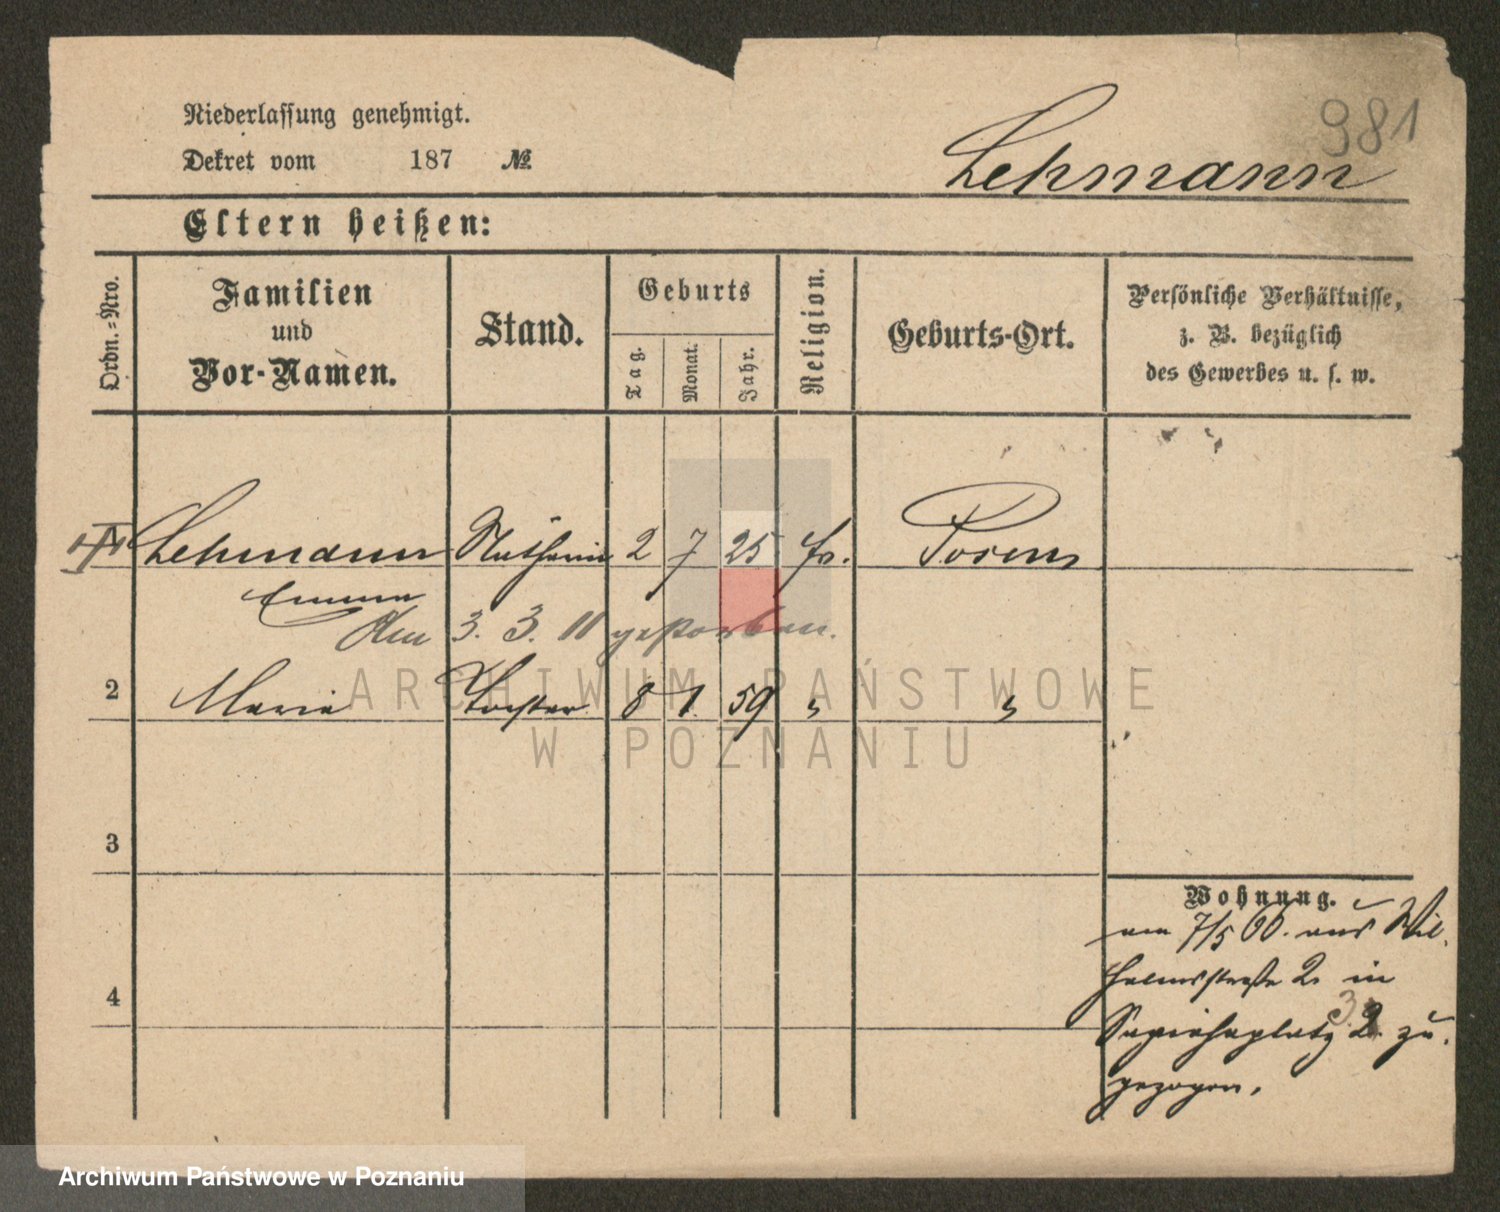 981
Niederlassung genehmigt.
Dekret vom 187 №
Lehmann
Eltern heißen:
Ordn.=Nro.
Familien
und
Vor-Namen.
Stand.
Geburts
Tag.
Monat.
Jahr.
Religion.
Geburts-Ort.
Persönliche Verhältnisse,
z. B. bezüglich
des Gewerbes u. s. w.
Lehmann 2 7 25 Posen
Emma
Am 3. 3. 11 gestorben.
2 Marie Tochter 8 1. 59 " "
3
4
Wohnung.
am 7/5 00. aus Wil
helmsstraße 2. in
Sapiehaplatz 2. zu
3
gezogen.
ARCHIWUM PAŃSTWOWE
W POZNANIU
Archiwum Państwowe w Poznaniu